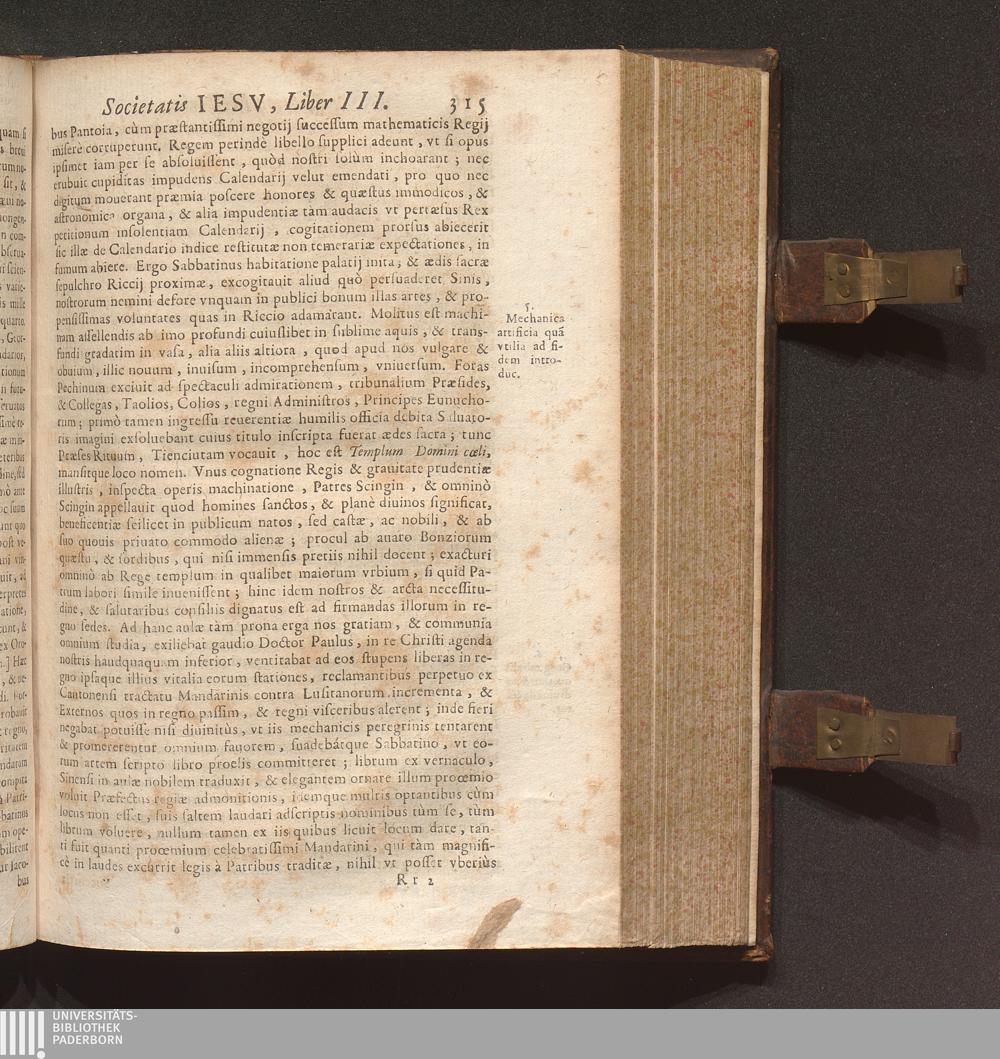 Societatis IESV, Liber III. 315
bus Pantoia, cùm præstantissimi negotij successum mathematicis Regij
miserè corruperunt. Regem perinde libello supplici adeunt, vt si opus
ipsimet iam per se absoluissent, quòd nostri solùm inchoarant; nec
erubuit cupiditas impudens Calendarij velut emendati, pro quo nec
digitum mouerant præmia poscere honores & quæstus immodicos, &
astronomica organa, & alia impudentiæ tàm audacis vt pertæsus Rex
petitionum insolentiam Calendarij, cogitationem prorsus abiecerit
sic illæ de Calendario indice restitutæ non temerariæ expectationes, in
fumum abiere. Ergo Sabbatinus habitatione palatij inita, & ædis sacræ
sepulchro Riccij proximæ, excogitauit aliud quò persuaderet Sinis,
nostrorum nemini defore vnquam in publici bonum illas artes, & pro-
pensissimas voluntates quas in Riccio adamarant. Molitus est machi-
nam assellendis ab imo profundi cuiuslibet in sublime aquis, & trans-
fundi gradatim in vasa, alia aliis altiora, quod apud nos vulgare &
obuium, illic nouum, inuisum, incomprehensum, vniuersum. Foras
Pechinum exciuit ad spectaculi admirationem, tribunalium Præsides,
& Collegas, Taolios, Colios, regni Administros, Principes Eunucho-
rum; primò tamen ingressu reuerentiæ humilis officia debita Saluato-
ris imagini exsoluebant cuius titulo inscripta fuerat ædes sacra; tunc
Præses Rituum, Tienciutam vocauit, hoc est Templum Domini cœli,
mansitque loco nomen. Vnus cognatione Regis & grauitate prudentiæ
illustris, inspecta operis machinatione, Patres Scingin, & omninò
Scingin appellauit quod homines sanctos, & planè diuinos significat,
beneficentiæ scilicet in publicum natos, sed castæ, ac nobili, & ab
suo quouis priuato commodo alienæ; procul ab auaro Bonziorum
quæstu, & sordibus, qui nisi immensis pretiis nihil docent; exacturi
omninò ab Rege templum in qualibet maiorum vrbium, si quid Pa-
trum labori simile inuenissent; hinc idem nostros & arcta necessitu-
dine, & salutaribus consiliis dignatus est ad firmandas illorum in re-
gno sedes. Ad hanc aulæ tàm prona erga nos gratiam, & communia
omnium studia, exiliebat gaudio Doctor Paulus, in re Christi agenda
nostris haudquaquam inferior, ventitabat ad eos stupens liberas in re-
gno ipsaque illius vitalia eorum stationes, reclamantibus perpetuo ex
Cantonensi tractatu Mandarinis contra Lusitanorum incrementa, &
Externos quos in regno passim, & regni visceribus alerent; inde fieri
negabat potuisse nisi diuinitùs, vt iis mechanicis peregrinis tentarent
& promererentur omnium fauorem, suadebátque Sabbatino, vt eo-
rum artem scripto libro proelis committeret; librum ex vernaculo,
Sinensi in aulæ nobilem traduxit, & elegantem ornare illum proœmio
voluit Præfectus regiæ admonitionis, idemque multis optantibus cùm
locus non esset, suis saltem laudari adscriptis nominibus tùm se, tùm
librum voluere, nullum tamen ex iis quibus licuit locum dare, tan-
ti fuit quanti proœmium celebratissimi Mandarini, qui tàm magnifi-
cè in laudes excurrit legis à Patribus traditæ, nihil vt posset vberiùs
Rr 2
5.
Mechanica
artificia quã
vtilia ad fi-
dem intro-
duc.
UNIVERSITÄTS-
BIBLIOTHEK
PADERBORN